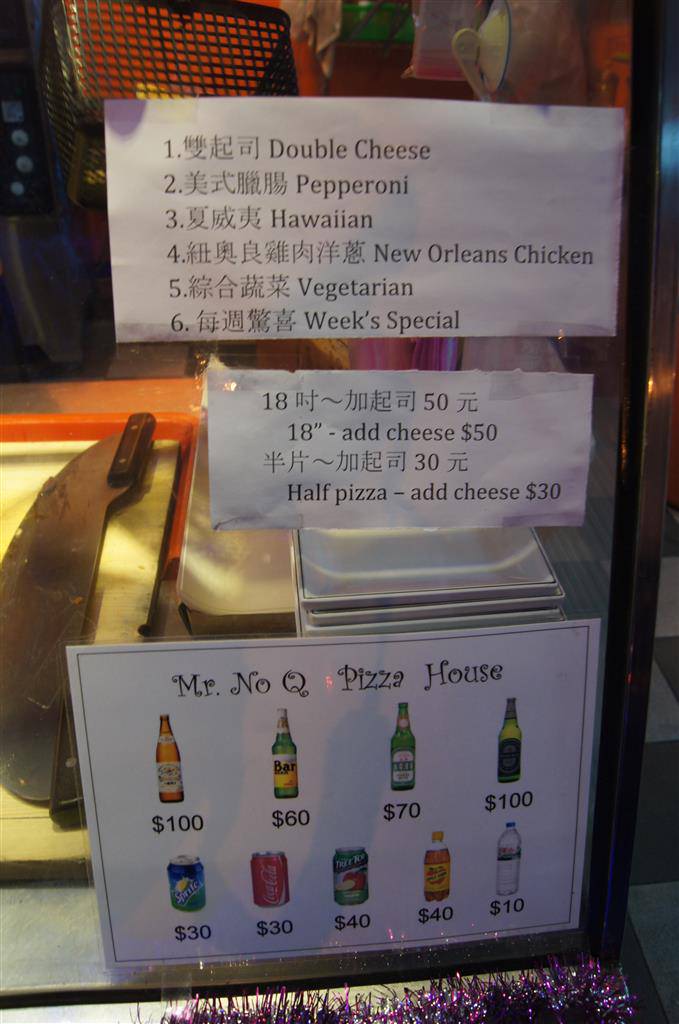 1.雙起司 Double Cheese
2.美式臘腸 Pepperoni
3.夏威夷 Hawaiian
4.紐奧良雞肉洋蔥 New Orleans Chicken
5.綜合蔬菜 Vegetarian
6. 每週驚喜 Week's Special
18 吋～加起司 50 元
18” - add cheese $50
半片～加起司 30 元
Half pizza – add cheese $30
Mr. No Q Pizza House
Bar
$100 $60 $70 $100
Sprite Coca-Cola TREE TOP
$30 $30 $40 $40 $10